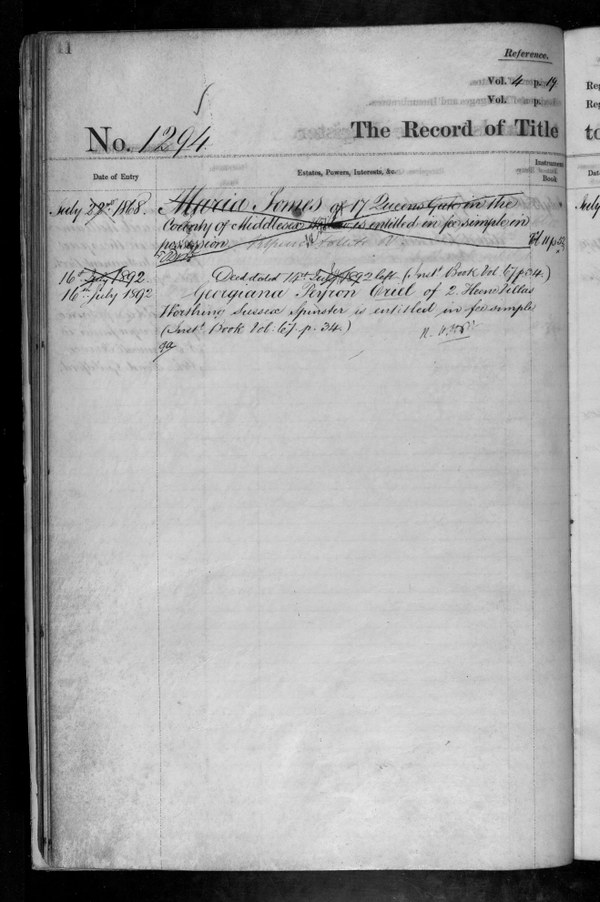 11
Reference.
Vol. 4 p. 19
Vol. p.
No. 1294
The Record of Title
Date of Entry
Estates, Powers, Interests, &c.
Instrument Book
July 22nd 1868.
Maria Somes of 17 Queens Gate in the
County of Middlesex is entitled in fee simple in
possession
16th July 1892
Deed dated 14th July 1892 left (Inst. Book Vol. 67 p. 34.)
16th July 1892
Georgiana Oriel of 2
Villas
Worthing Sussex Spinster is entitled in fee simple
(Inst. Book Vol. 67. p. 34.)